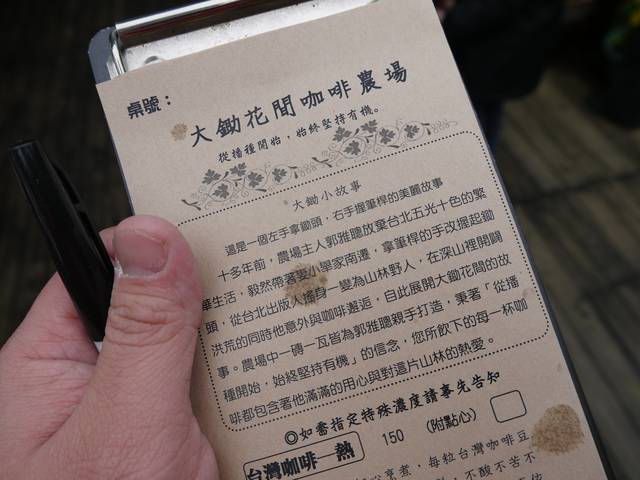 桌號：
大鋤花間咖啡農場
從播種開始，始終堅持有機。
大鋤小故事
這是一個左手拿鋤頭，右手握筆桿的美麗故事
十多年前，農場主人郭雅聰放棄台北五光十色的繁
華生活，毅然帶著妻小舉家南遷，拿筆桿的手改握起鋤
頭，從台北出版人搖身一變為山林野人，在深山裡開闢
洪荒的同時他意外與咖啡邂逅，自此展開大鋤花間的故
事。農場中一磚一瓦皆為郭雅聰親手打造，秉著「從播
種開始，始終堅持有機」的信念，您所飲下的每一杯咖
啡都包含著他滿滿的用心與對這片山林的熱愛。
◎如需指定特殊濃度請事先告知
台灣咖啡－熱 150 (附點心)
烹煮，每粒台灣咖啡豆
不酸不苦不